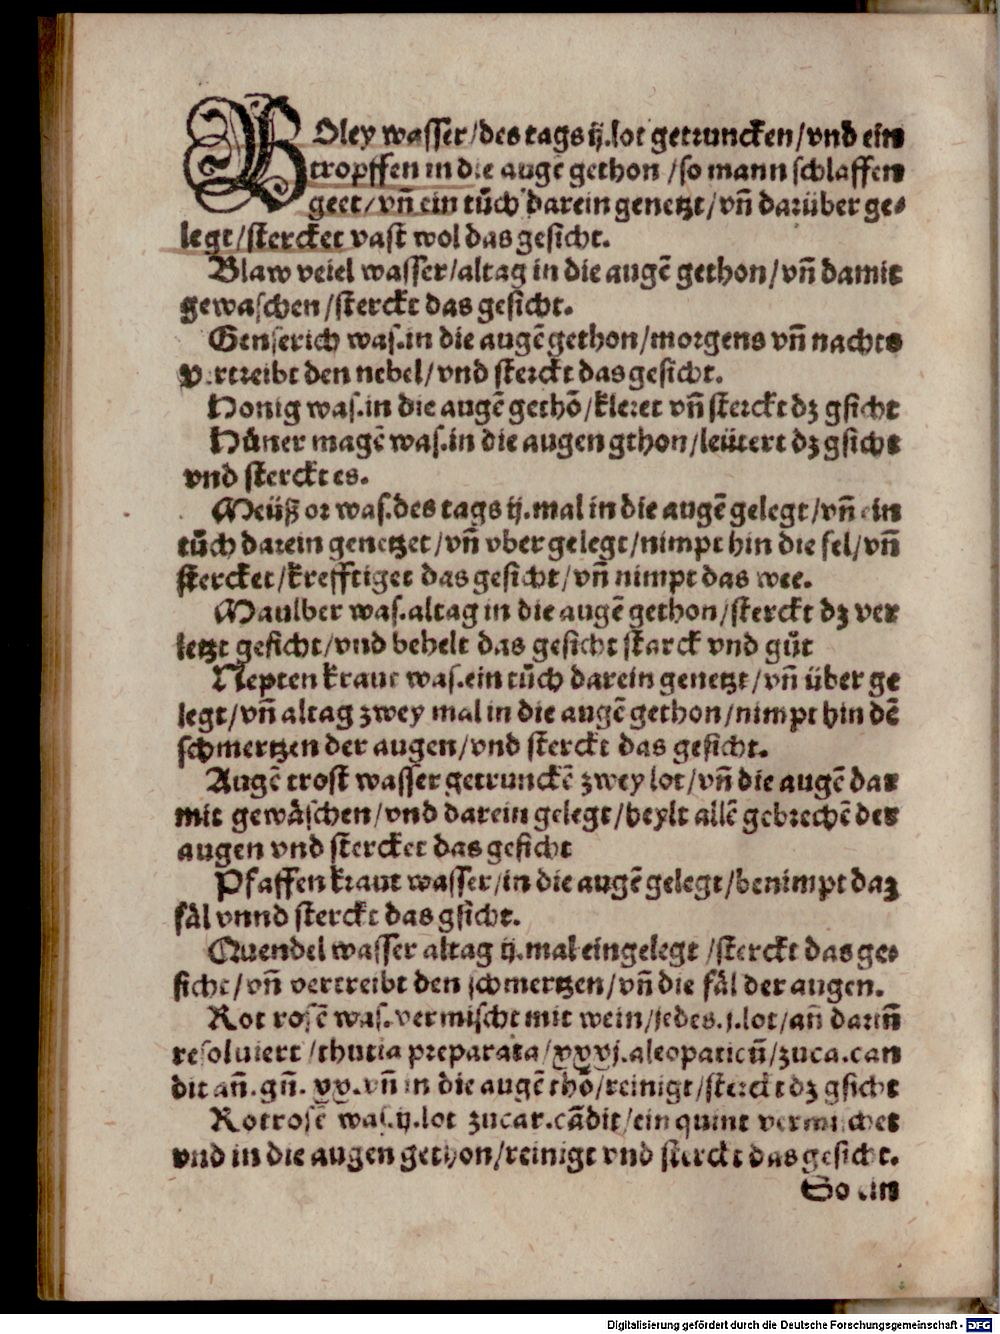 BOley wasser/des tags ij.lot getruncken/vnd ein
tropffen in die augē gethon/so mann schlaffen
geet/vñ ein tůch darein genetzt/vñ darüber ge-
legt/stercket vast wol das gesicht.
Blaw veiel wasser/altag in die augē gethon/vñ damit
gewaschen/sterckt das gesicht.
Genserich was.in die augē gethon/morgens vñ nachts
vertreibt den nebel/vnd sterckt das gesicht.
Honig was.in die augē gethō/kleret vñ sterckt dz gsicht
Hůner magē was.in die augen gthon/leütert dz gsicht
vnd sterckt es.
Meüß or was.des tags ij.mal in die augē gelegt/vñ ein
tůch darein genetzet/vñ vber gelegt/nimpt hin die fel/vñ
stercket/krefftiget das gesicht/vñ nimpt das wee.
Maulber was.altag in die augē gethon/sterckt dz ver
letzt gesicht/vnd behelt das gesicht starck vnd gůt
Nepten kraut was.ein tůch darein genetzt/vñ über ge
legt/vñ altag zwey mal in die augē gethon/nimpt hin dē
schmertzen der augen/vnd sterckt das gesicht.
Augē trost wasser getrunckē zwey lot/vñ die augē dar
mit gewäschen/vnd darein gelegt/heylt allē gebrechē der
augen vnd stercket das gesicht
Pfaffen kraut wasser/in die augē gelegt/benimpt daz
fäl vnnd sterckt das gsicht.
Quendel wasser altag ij.mal eingelegt/sterckt das ge-
sicht/vñ vertreibt den schmertzen/vñ die fäl der augen.
Rot rosē was.vermischt mit wein/jedes.j.lot/añ dariñ
resoluiert/thutia preparata/xxxj.aleopaticū/zuca.can
dit añ.gñ.xx.vñ in die augē thō/reinigt/sterckt dz gsicht
Rotrosē was.ij.lot zucar.cādit/ein quint vermischet
vnd in die augen gethon/reinigt vnd sterckt das gesicht.
So ein
Digitalisierung gefördert durch die Deutsche Forschungsgemeinschaft - DFG